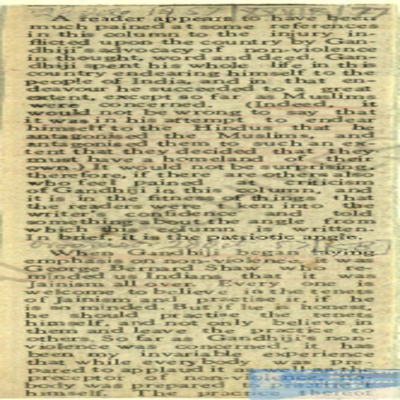 A reader appears to have been
much pained at some references
in this column to the injury in-
flicted upon the country by Gan-
dhiji's advocacy of non-violence
in thought, word and deed. Gan-
dhiji spent his whole life in this
country endearing himself to the
people of India, and in that en-
deavour he succeeded to a great
extent, except so far as Muslims
were concerned. (Indeed, it
would not be wrong to say that
it was in his attempt to endear
himself to the Hindus that he
antagonised the Muslims, and
antagonised them to such an ex-
tent that they decided that they
must have a homeland of their
own.) It would not be surprising,
therefore, if there are others also
who feel pained at criticism
of Gandhiji in this column, and
it is in the fitness of things that
the readers were taken into the
writer's confidence and told
something about the angle from
which this column is written.
In brief, it is the patriotic angle.
When Gandhiji began laying
emphasis on non-violence, it was
George Bernard Shaw who re-
minded us Indians that it was
Jainism all over. Every one is
welcome to believe in the tenets
of Jainism and practise it, if he
is so minded. But if he is honest,
he should practise the tenets
himself, and not only believe in
them and leave the practice to
others. So far as Gandhiji's non-
violence was concerned, it has
been my invariable experience
that while every body was pre-
pared to applaud it as well as the
preceptor of non-violence, no-
body was prepared to practise it
himself. The practice thereof